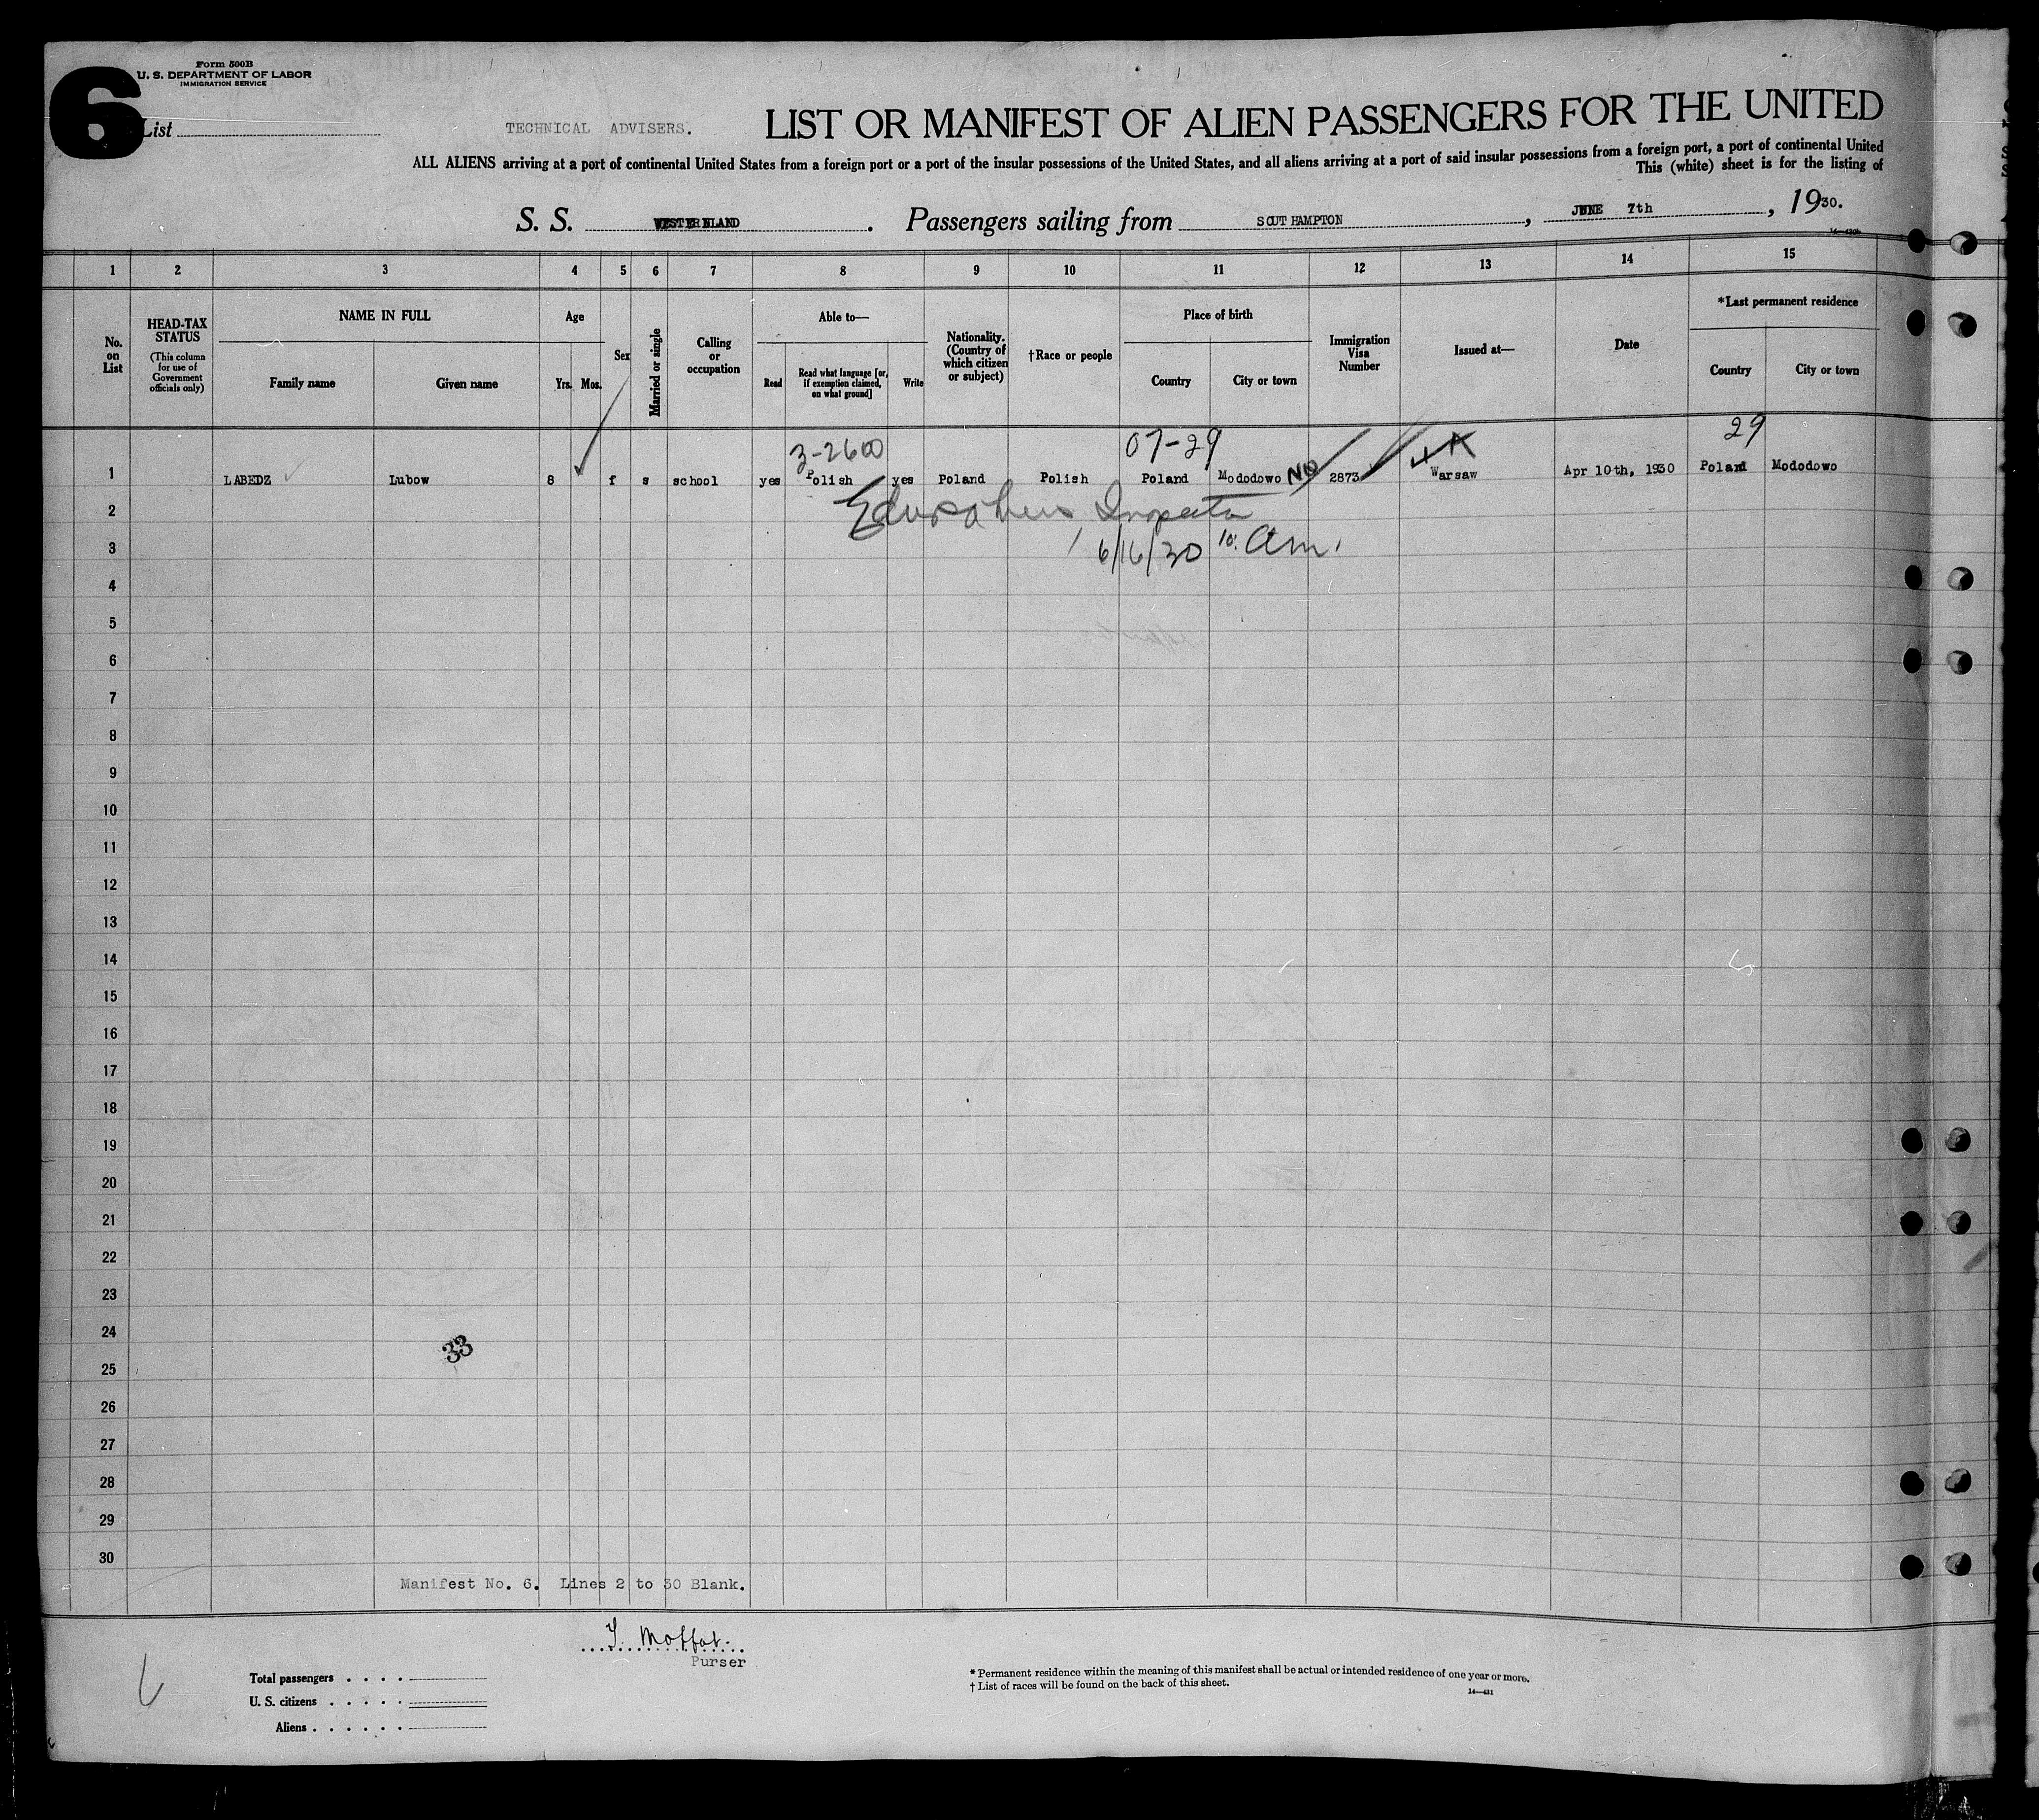 6
Form 500B
U. S. DEPARTMENT OF LABOR
IMMIGRATION SERVICE
List
TECHNICAL ADVISERS.
LIST OR MANIFEST OF ALIEN PASSENGERS FOR THE UNITED
ALL ALIENS arriving at a port of continental United States from a foreign port or a port of the insular possessions of the United States, and all aliens arriving at a port of said insular possessions from a foreign port, a port of continental United
This (white) sheet is for the listing of
S. S. WESTERNLAND. Passengers sailing from SOUTHAMPTON, JUNE 7th, 1930.
1 2 3 4 5 6 7 8 9 10 11 12 13 14 15
No. on List
HEAD-TAX STATUS
(This column for use of Government officials only)
NAME IN FULL
Family name
Given name
Age
Yrs. Mos.
Sex
Married or single
Calling or occupation
Able to—
Read
Read what language [or, if exemption claimed, on what ground]
Write
Nationality. (Country of which citizen or subject)
†Race or people
Place of birth
Country
City or town
Immigration Visa Number
Issued at—
Date
*Last permanent residence
Country
City or town
3-2600
07-29
29
1 LABEDZ Lubow 8 f s school yes Polish yes Poland Polish Poland Mododowo NQ 2873 Warsaw Apr 10th, 1930 Poland Mododowo
2
3 6/16/30 10: am.
4
5
6
7
8
9
10
11
12
13
14
15
16
17
18
19
20
21
22
23
24
33
25
26
27
28
29
30
Manifest No. 6. Lines 2 to 30 Blank.
Moffat.
Purser
Total passengers
U. S. citizens
Aliens
* Permanent residence within the meaning of this manifest shall be actual or intended residence of one year or more.
† List of races will be found on the back of this sheet.
14—431